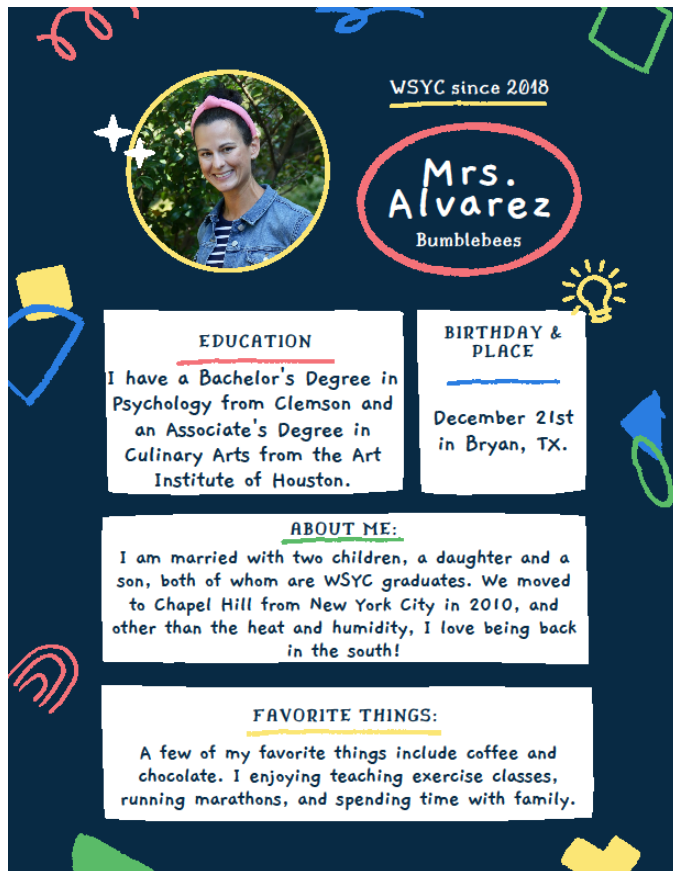 WSYC since 2018
Mrs.
Alvarez
Bumblebees
EDUCATION
I have a Bachelor's Degree in
Psychology from Clemson and
an Associate's Degree in
Culinary Arts from the Art
Institute of Houston.
BIRTHDAY &
PLACE
December 21st
in Bryan, TX.
ABOUT ME:
I am married with two children, a daughter and a
son, both of whom are WSYC graduates. We moved
to Chapel Hill from New York City in 2010, and
other than the heat and humidity, I love being back
in the south!
FAVORITE THINGS:
A few of my favorite things include coffee and
chocolate. I enjoying teaching exercise classes,
running marathons, and spending time with family.